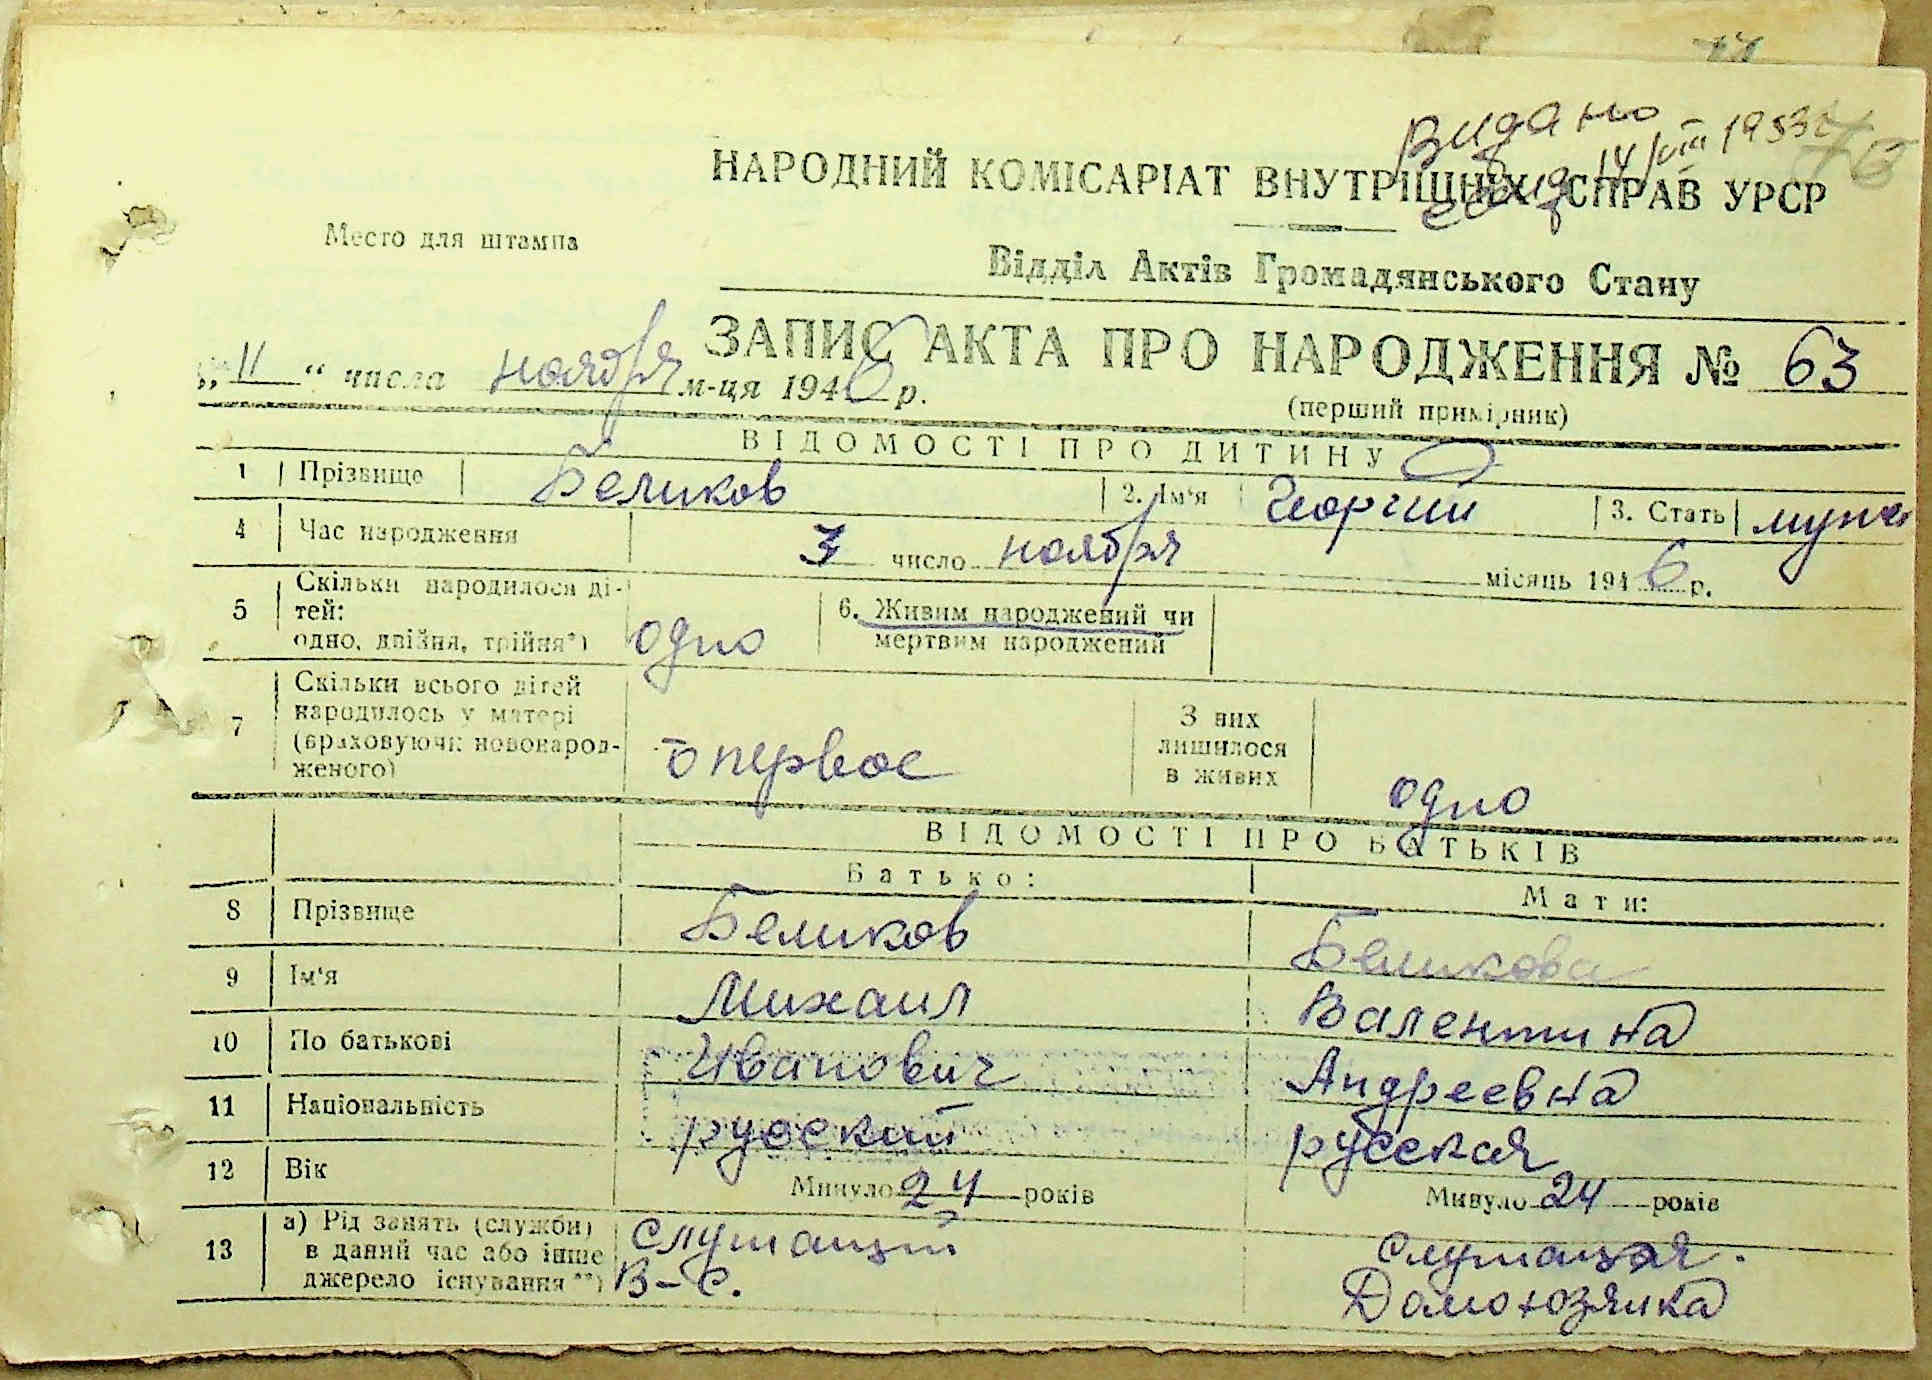 74
Видано
14/VIII 1953
НАРОДНИЙ КОМІСАРІАТ ВНУТРІШНІХ СПРАВ УРСР
Место для штампа
Відділ Актів Громадянського Стану
ЗАПИС АКТА ПРО НАРОДЖЕННЯ № 63
„11“ числа ноября м-ця 1946 р.
(перший примірник)
ВІДОМОСТІ ПРО ДИТИНУ
1 Прізвище Беликов 2. Ім'я Георгий 3. Стать
4 Час народження 3 число ноября місяць 1946 р.
5 Скільки народилося ді-
тей:
одно, двійня, трійня*) одно
6. Живим народжений чи
мертвим народжений
7 Скільки всього дітей
народилось у матері
(враховуючи новонарод-
женого) первое
З них
лишилося
в живих одно
ВІДОМОСТІ ПРО БАТЬКІВ
Батько: Мати:
8 Прізвище Беликов Беликова
9 Ім'я Михаил Валентина
10 По батькові Иванович Андреевна
11 Національність русский русская
12 Вік Минуло 24 років Минуло 24 років
13 а) Рід занять (служби)
в даний час або інше
джерело існування**)
служащий
В-С.
служащая.
Домохозяйка